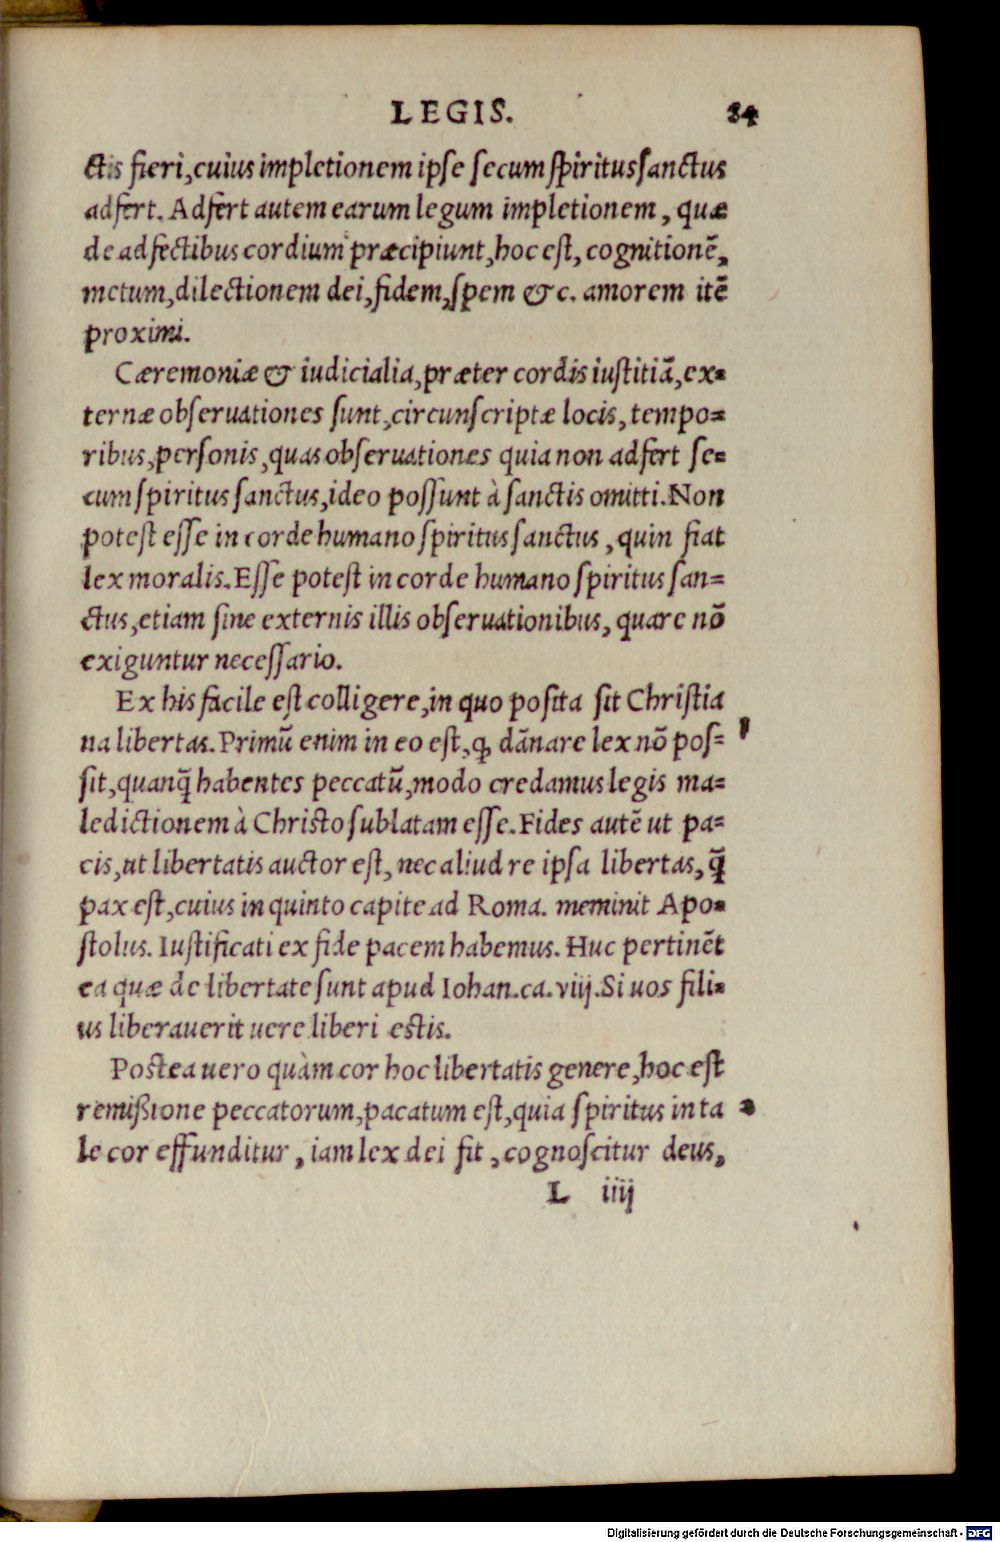 LEGIS. 84
ctis fieri, cuius impletionem ipse secum spiritus sanctus
adfert. Adfert autem earum legum impletionem, quæ
de adfectibus cordium præcipiunt, hoc est, cognitionẽ,
metum, dilectionem dei, fidem, spem &c. amorem itẽ
proximi.
Cæremoniæ & iudicialia, præter cordis iustitiã, ex=
ternæ obseruationes sunt, circunscriptæ locis, tempo=
ribus, personis, quas obseruationes quia non adfert se=
cum spiritus sanctus, ideo possunt à sanctis omitti. Non
potest esse in corde humano spiritus sanctus, quin fiat
lex moralis. Esse potest in corde humano spiritus san=
ctus, etiam sine externis illis obseruationibus, quare nõ
exiguntur necessario.
Ex his facile est colligere, in quo posita sit Christia
na libertas. Primũ enim in eo est, ꝙ dãnare lex nõ pos=
sit, quanq̃ habentes peccatũ, modo credamus legis ma=
ledictionem à Christo sublatam esse. Fides autẽ ut pa=
cis, ut libertatis auctor est, nec aliud re ipsa libertas, q̃
pax est, cuius in quinto capite ad Roma. meminit Apo=
stolus. Iustificati ex fide pacem habemus. Huc pertinẽt
ea quæ de libertate sunt apud Iohan. ca. viij. Si uos fili=
us liberauerit uere liberi estis.
Postea uero quàm cor hoc libertatis genere, hoc est
remißione peccatorum, pacatum est, quia spiritus in ta 2
le cor effunditur, iam lex dei fit, cognoscitur deus,
L iiij
Digitalisierung gefördert durch die Deutsche Forschungsgemeinschaft - DFG